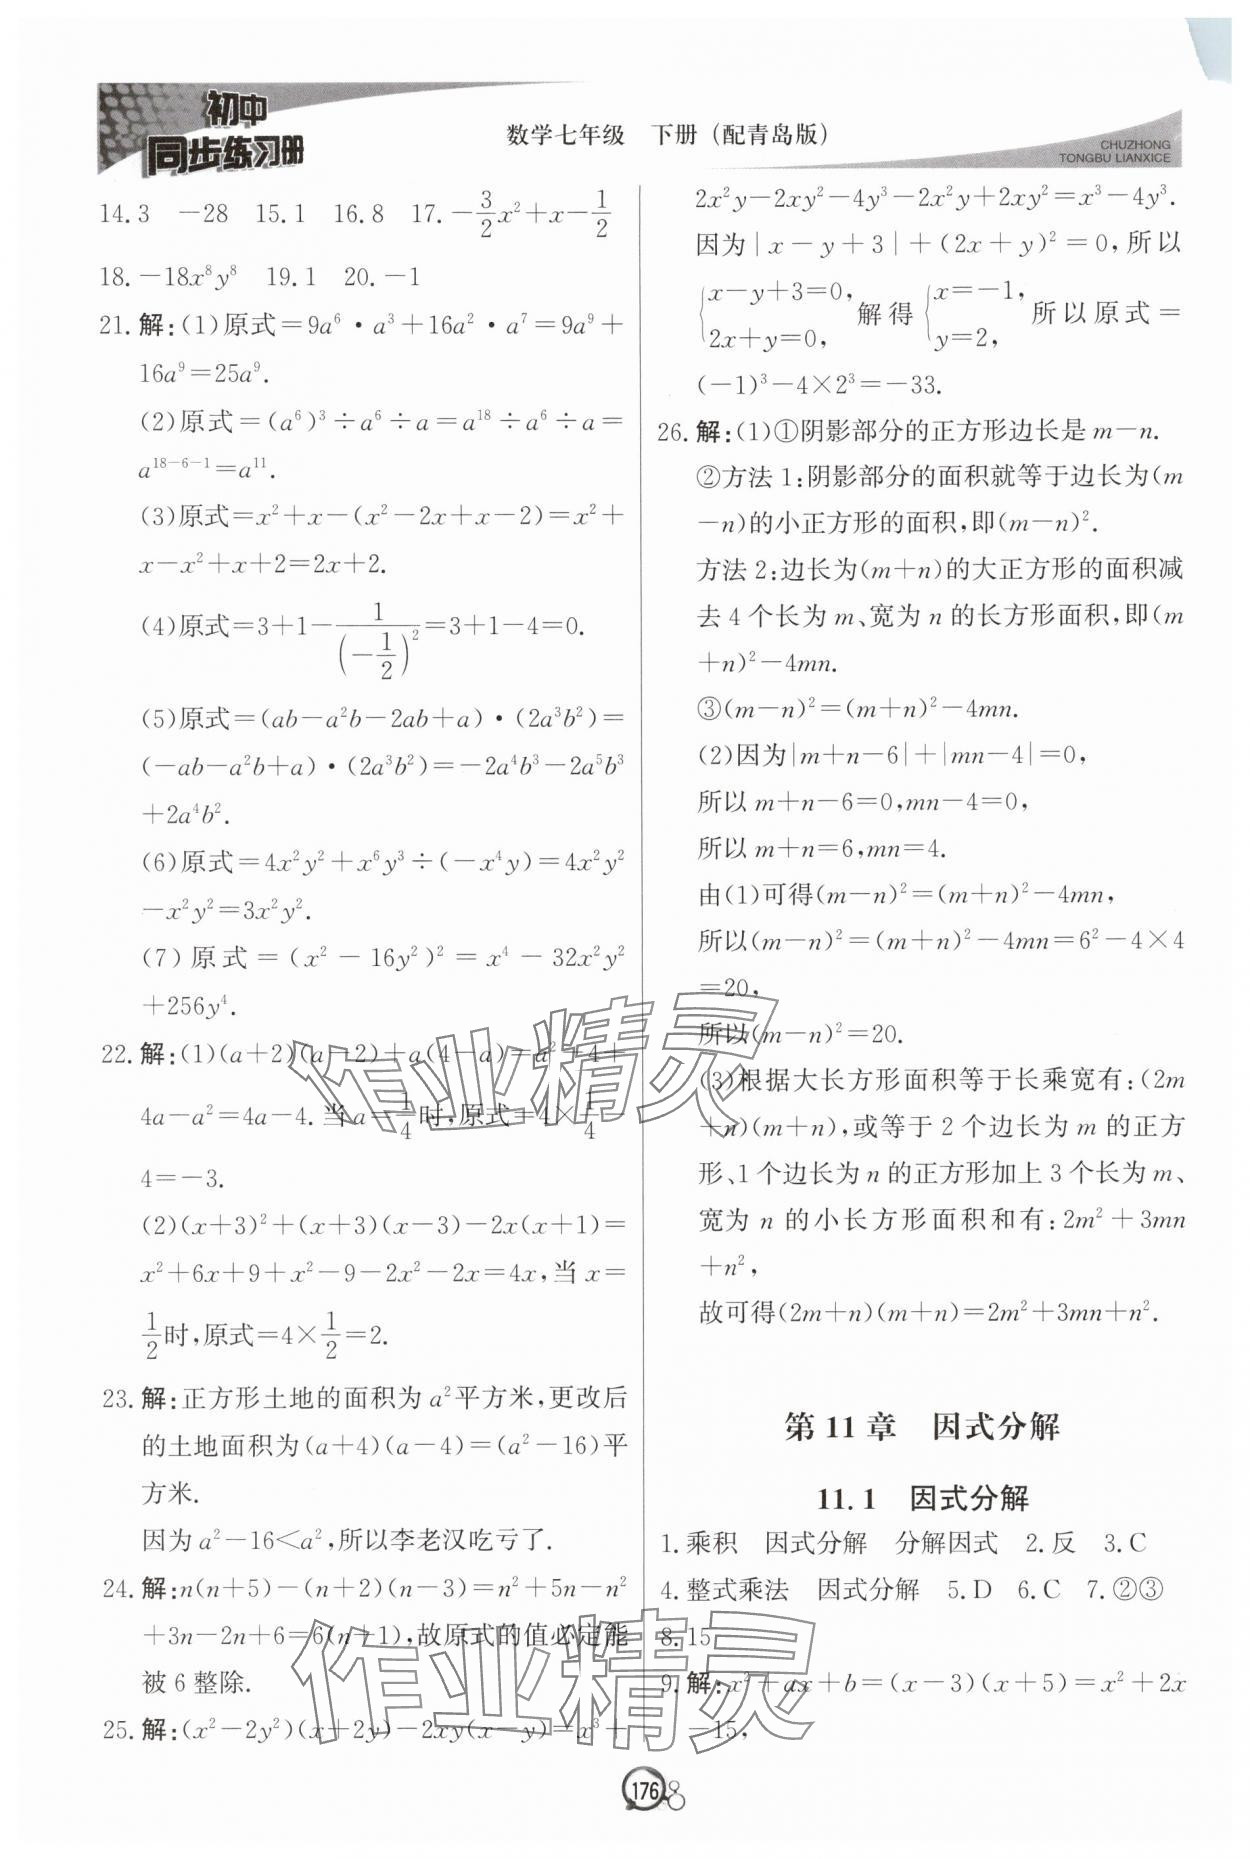 初中
同步练习册
数学七年级　下册（配青岛版）
CHUZHONG
TONGBU LIANXICE
14.3　-28　15.1　16.8　17.-\frac{3}{2}x²+x-\frac{1}{2}
18.-18x⁸y⁸　19.1　20.-1
21.解:(1)原式=9a⁶·a³+16a²·a⁷=9a⁹+
16a⁹=25a⁹.
(2)原式=(a⁶)³÷a⁶÷a=a¹⁸÷a⁶÷a=
a¹⁸⁻⁶⁻¹=a¹¹.
(3)原式=x²+x-(x²-2x+x-2)=x²+
x-x²+x+2=2x+2.
(4)原式=3+1-\frac{1}{(-\frac{1}{2})²}=3+1-4=0.
(5)原式=(ab-a²b-2ab+a)·(2a³b²)=
(-ab-a²b+a)·(2a³b²)=-2a⁴b³-2a⁵b³
+2a⁴b².
(6)原式=4x²y²+x⁶y³÷(-x⁴y)=4x²y²
-x²y²=3x²y².
(7)原式=(x²-16y²)²=x⁴-32x²y²
+256y⁴.
22.解:(1)(a+2)(a-2)+a(4-a)=a²-4+
4a-a²=4a-4.当a=\frac{1}{4}时,原式=4×\frac{1}{4}-
4=-3.
(2)(x+3)²+(x+3)(x-3)-2x(x+1)=
x²+6x+9+x²-9-2x²-2x=4x,当x=
\frac{1}{2}时,原式=4×\frac{1}{2}=2.
23.解:正方形土地的面积为a²平方米,更改后
的土地面积为(a+4)(a-4)=(a²-16)平
方米.
因为a²-16<a²,所以李老汉吃亏了.
24.解:n(n+5)-(n+2)(n-3)=n²+5n-n²
+3n-2n+6=6(n+1),故原式的值必定能
被6整除.
25.解:(x²-2y²)(x+2y)-2xy(x-y)=x³+
2x²y-2xy²-4y³-2x²y+2xy²=x³-4y³.
因为|x-y+3|+(2x+y)²=0,所以
{x-y+3=0, 2x+y=0, 解得{x=-1, y=2, 所以原式=
(-1)³-4×2³=-33.
26.解:(1)①阴影部分的正方形边长是m-n.
②方法1:阴影部分的面积就等于边长为(m
-n)的小正方形的面积,即(m-n)².
方法2:边长为(m+n)的大正方形的面积减
去4个长为m、宽为n的长方形面积,即(m
+n)²-4mn.
③(m-n)²=(m+n)²-4mn.
(2)因为|m+n-6|+|mn-4|=0,
所以m+n-6=0,mn-4=0,
所以m+n=6,mn=4.
由(1)可得(m-n)²=(m+n)²-4mn,
所以(m-n)²=(m+n)²-4mn=6²-4×4
=20,
所以(m-n)²=20.
(3)根据大长方形面积等于长乘宽有:(2m
+n)(m+n),或等于2个边长为m的正方
形、1个边长为n的正方形加上3个长为m、
宽为n的小长方形面积和有:2m²+3mn
+n²,
故可得(2m+n)(m+n)=2m²+3mn+n².
第11章　因式分解
11.1　因式分解
1.乘积　因式分解　分解因式　2.反　3.C
4.整式乘法　因式分解　5.D　6.C　7.②③
8.15
9.解:x²+ax+b=(x-3)(x+5)=x²+2x
-15,
作业精灵
作业精灵
176